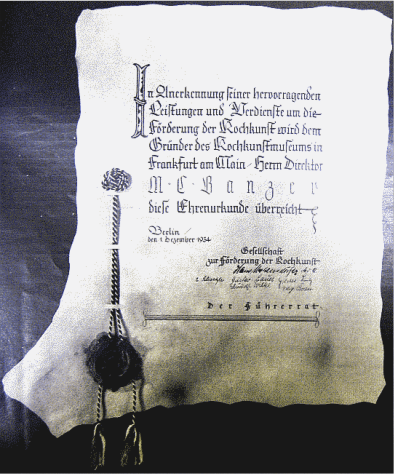 In Anerkennung seiner hervorragenden
Leistungen und Verdienste um die
Förderung der Kochkunst wird dem
Gründer des Kochkunstmuseums in
Frankfurt am Main Herrn Direktor
M·C·Banzer
diese Ehrenurkunde überreicht
Berlin
den 1. Dezember 1934
Gesellschaft
zur Förderung der Kochkunst
Der Führerrat